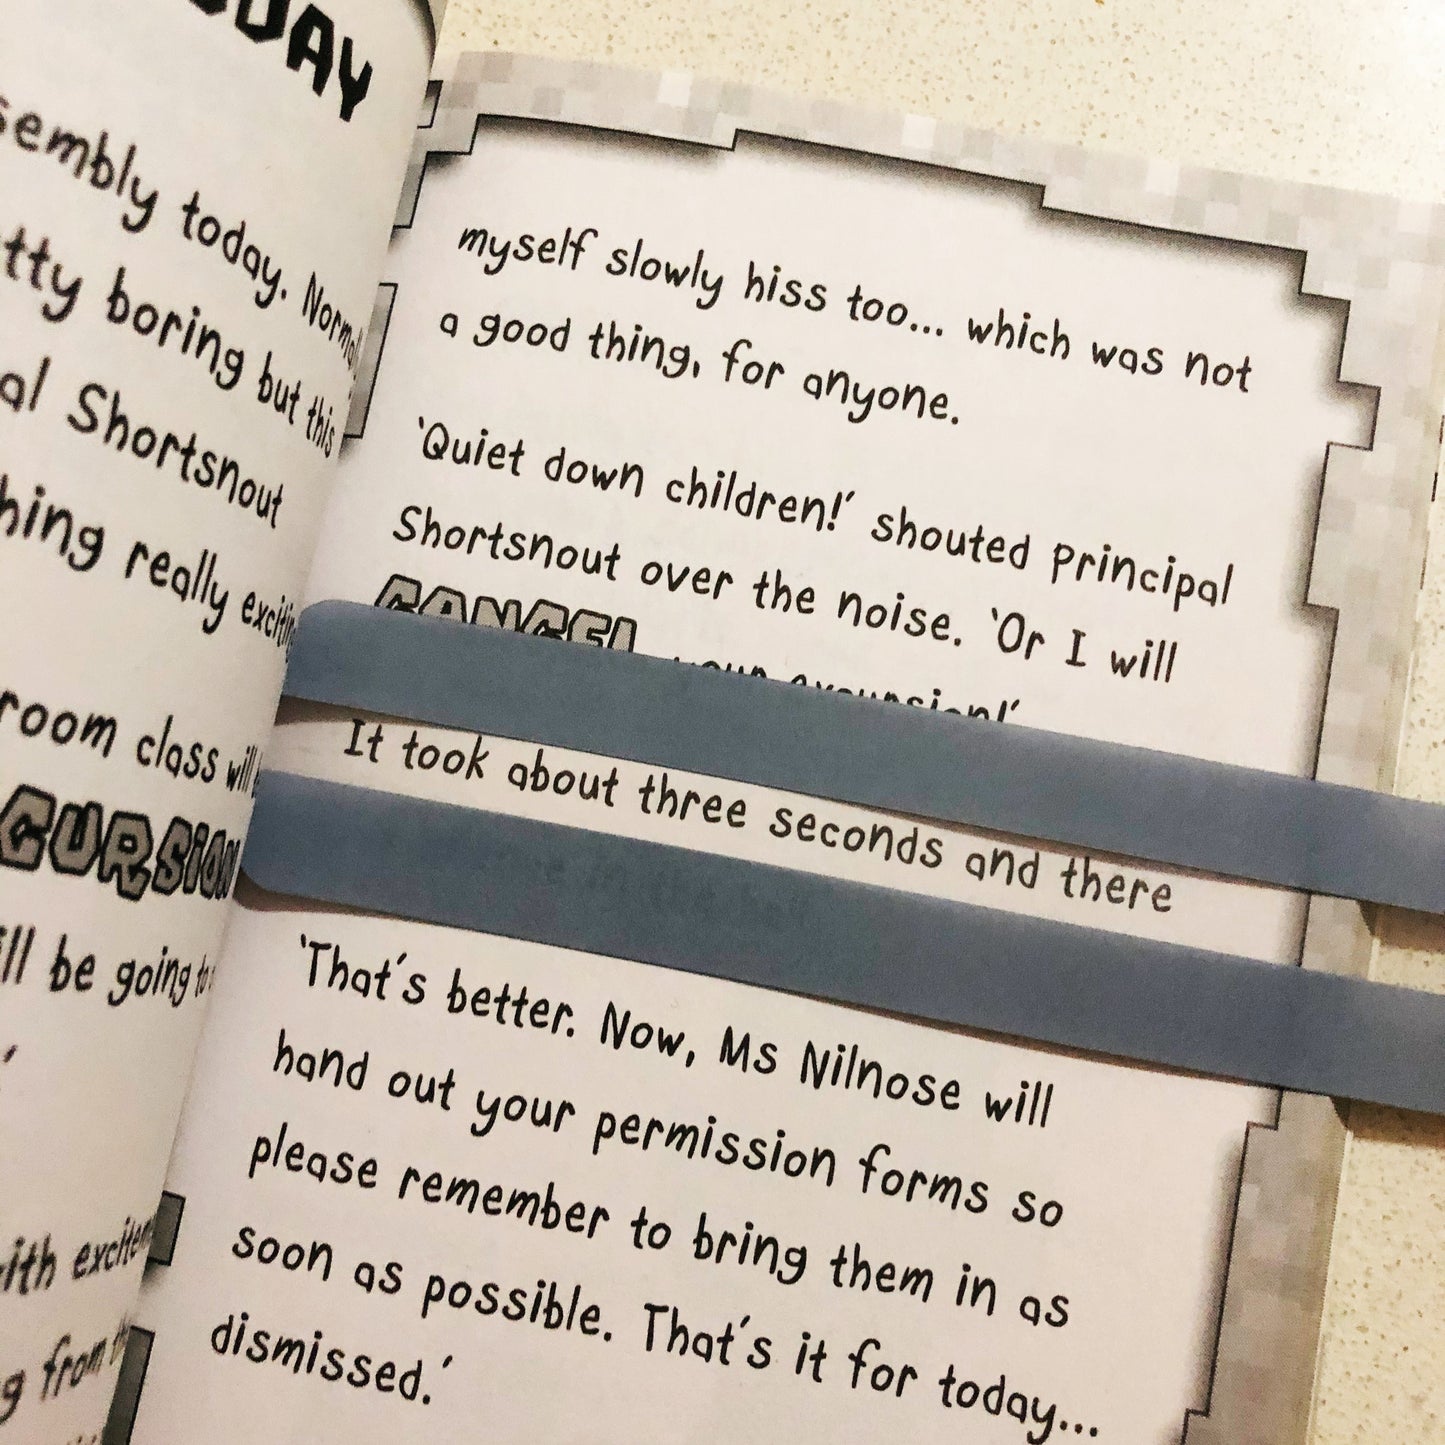 sembly today. Normal
tty boring but this
al Shortsnout
hing really exciting
room class will
CURSION
ll be going to
ith excitem
g from th
myself slowly hiss too... which was not
a good thing, for anyone.
‘Quiet down children!’ shouted Principal
Shortsnout over the noise. ‘Or I will
CANCEL your excursion!’
It took about three seconds and there
‘That’s better. Now, Ms Nilnose will
hand out your permission forms so
please remember to bring them in as
soon as possible. That’s it for today...
dismissed.’